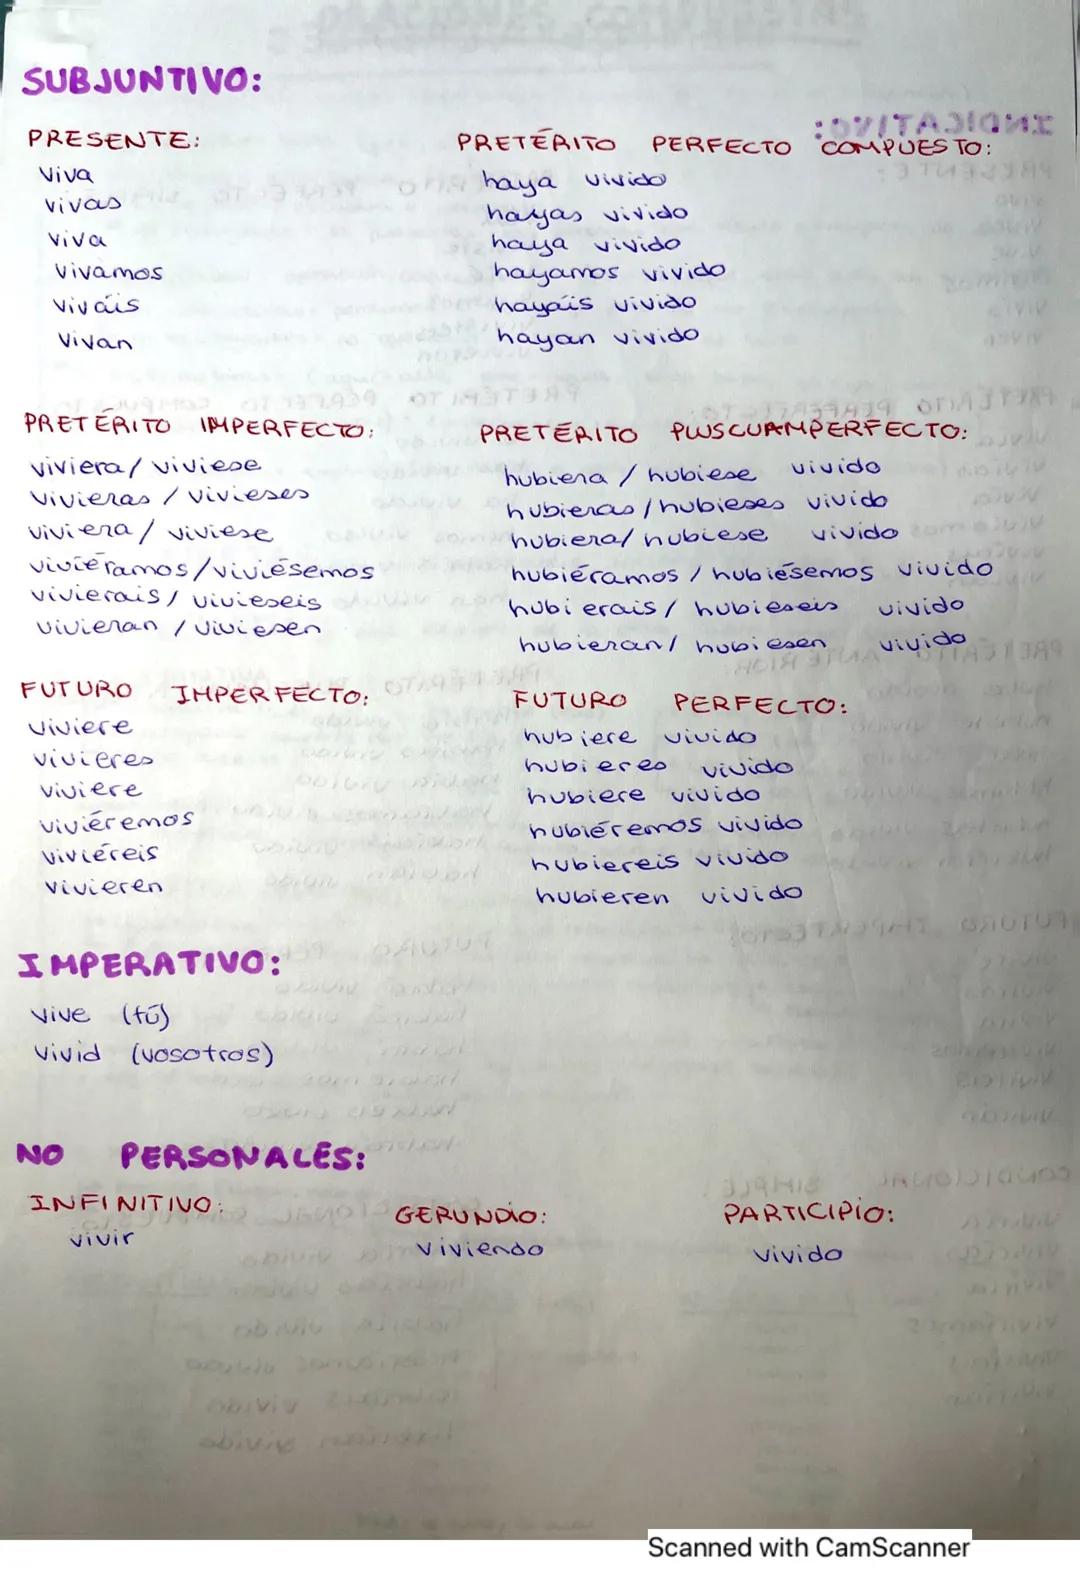 SUBJUNTIVO:
PRESENTE:
viva
vivas
viva
vivamos
viváis
vivan
PRETÉRITO PERFECTO COMPUESTO:
haya vivido
hayas vivido
haya vivido
hayamos vivido
hayáis vivido
hayan vivido
PRETÉRITO IMPERFECTO:
viviera/ viviese
vivieras / vivieses
viviera / viviese
viviéramos/viviésemos
vivierais/ vivieseis
vivieran / viviesen
PRETÉRITO PLUSCUAMPERFECTO:
hubiera / hubiese vivido
hubieras / hubieses vivido
hubiera/ hubiese vivido
hubiéramos / hubiésemos vivido
hubierais / hubieseis vivido
hubieran/ hubiesen vivido
FUTURO IMPERFECTO:
viviere
vivieres
viviere
viviéremos
viviéreis
vivieren
FUTURO PERFECTO:
hubiere vivido
hubieres vivido
hubiere vivido
hubiéremos vivido
hubiereis vivido
hubieren vivido
IMPERATIVO:
vive (tú)
vivid (vosotros)
NO PERSONALES:
INFINITIVO:
vivir
GERUNDIO:
viviendo
PARTICIPIO:
vivido
Scanned with CamScanner